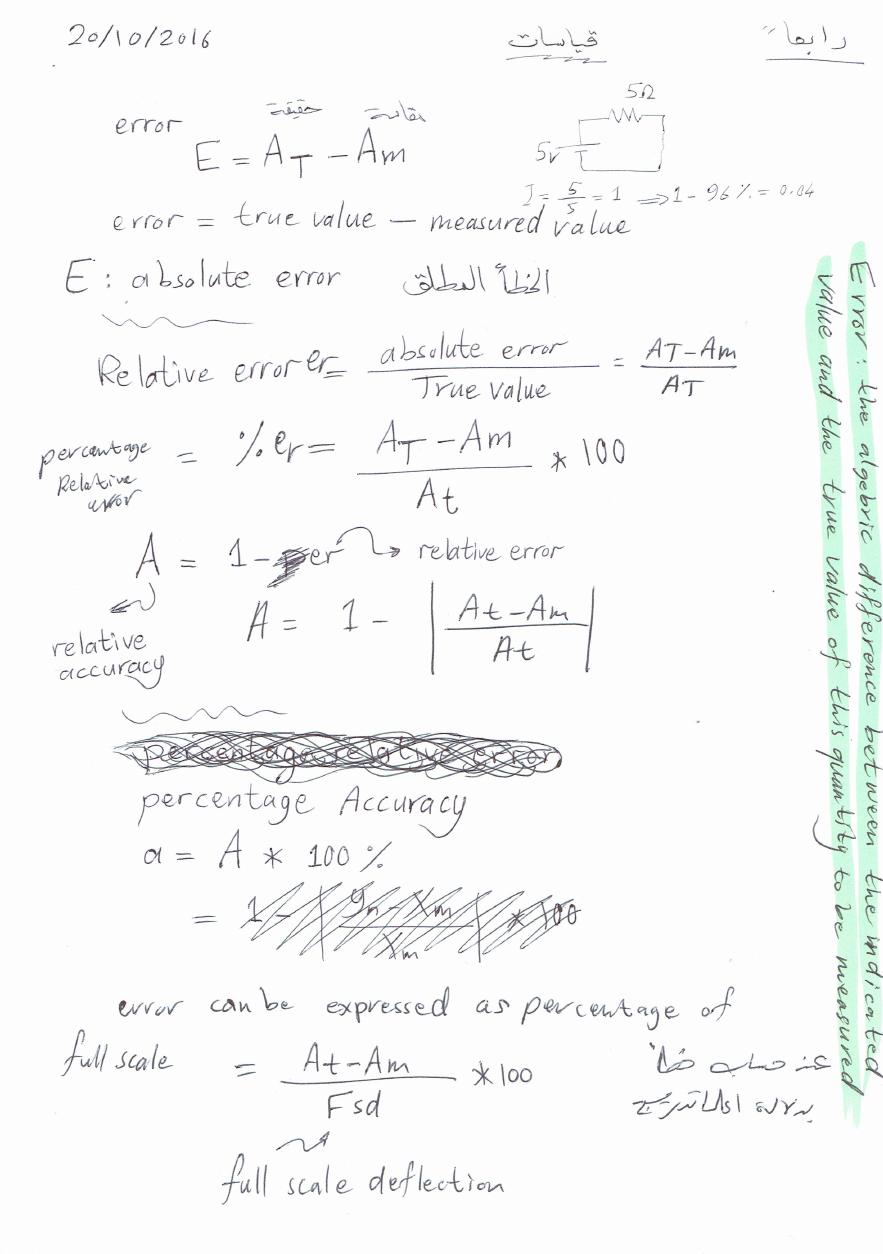 20/10/2016
قياسات
رابعا"
error
حقيقة
E = A_T - Am
5Ω
5v
I = 5/5 = 1 ⇒ 1 - 96 % = 0.04
error = true value - measured value
E : absolute error الخطأ المطلق
Relative error er = absolute error / True value = AT - Am / AT
percentage Relative error = % er = A_T - Am / At * 100
A = 1 - er → relative error
relative accuracy
A = 1 - | At - Am / At |
percentage relative error
percentage Accuracy
a = A * 100 %
= 1 - | - Xm / Xm | * 100
error can be expressed as percentage of
full scale = At - Am / Fsd * 100
full scale deflection
عند حساب
Error : the algebric difference between the indicated
value and the true value of this quantity to be measured